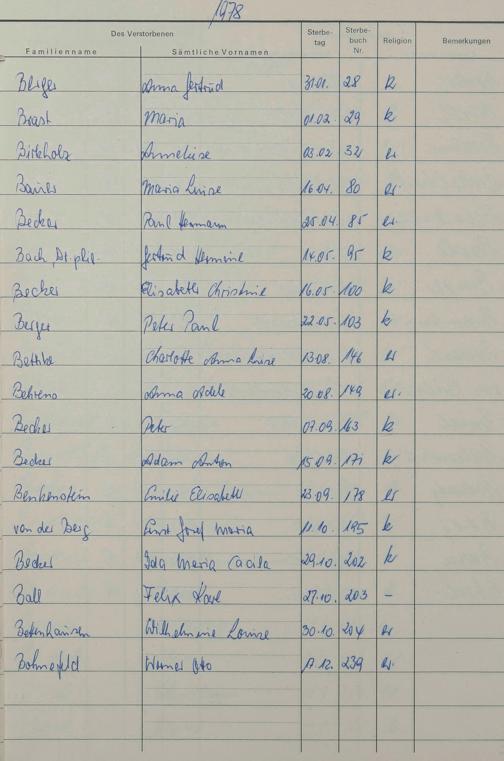 1978
Des Verstorbenen Sterbe- Sterbe-
Familienname Sämtliche Vornamen tag buch Nr. Religion Bemerkungen
Berger Anna Gertrud 31.01. 28 k
Brast Maria 01.02. 29 k
Birkholz Anneliese 03.02 32 ev
Maria Luise 16.04. 80 ev.
Becker Paul Hermann 25.04. 85 ev.
Bach, Dr. phil. Gertrud Hermine 14.05. 95 k
Becker Elisabeth Christine 16.05. 100 k
Berger Peter Paul 22.05. 103 k
Bethke Charlotte Anna Luise 13.08. 146 ev
Behrens Anna Adele 20.08. 149 ev.
Becher Peter 07.09. 163 k
Becker Adam Anton 15.09. 171 k
Benkenstein Emilie Elisabeth 23.09. 178 ev
von der Berg Ernst Josef Maria 11.10. 195 k
Becker Ida Maria Cäcilia 29.10. 202 k
Ball Felix Karl 27.10. 203 –
Wilhelmine Louise 30.10. 204 ev
Bohnefeld Werner Otto 239 ev.